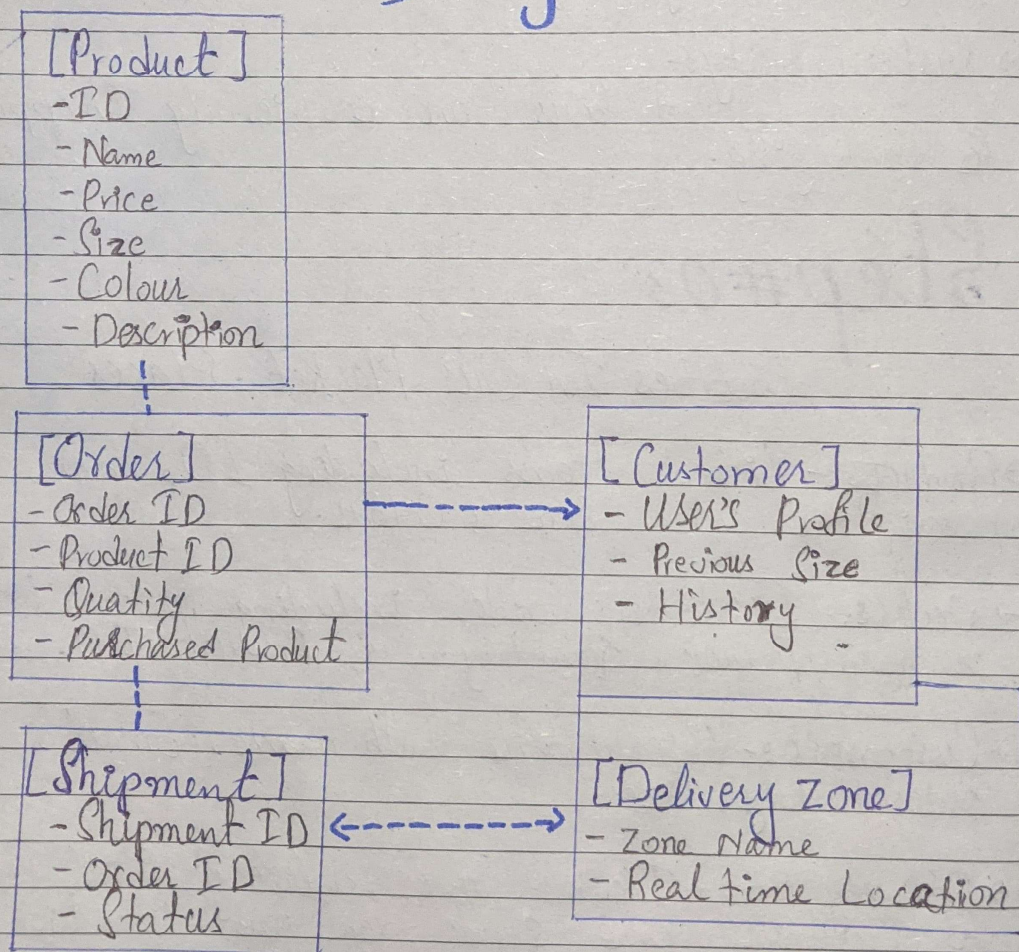 [Product]
-ID
- Name
- Price
- Size
- Colour
- Description
[Order]
- Order ID
- Product ID
- Quatity
- Purchased Product
[Customer]
- User's Profile
- Previous Size
- History
[Shipment]
- Shipment ID
- Order ID
- Status
[Delivery Zone]
- Zone Name
- Real time Location